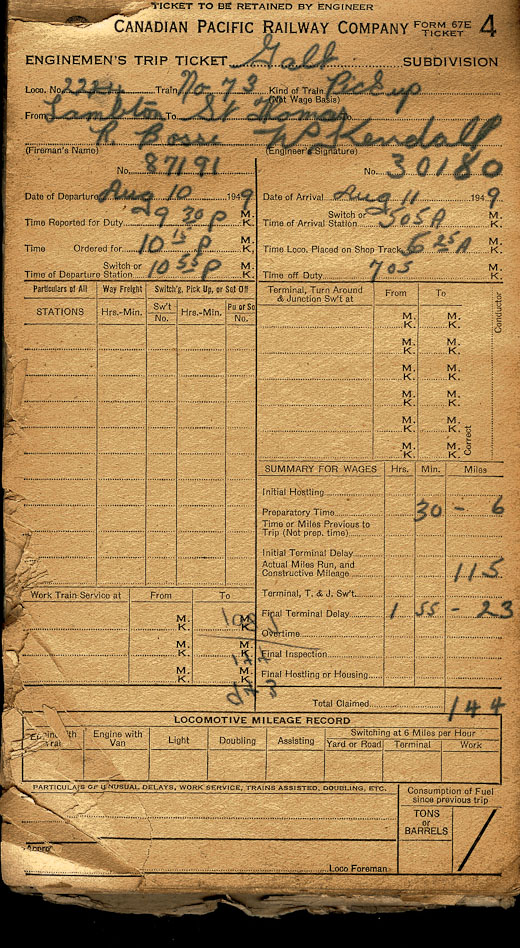 TICKET TO BE RETAINED BY ENGINEER
CANADIAN PACIFIC RAILWAY COMPANY FORM 67E TICKET 4
ENGINEMEN'S TRIP TICKET Galt SUBDIVISION
Loco. No. Train No 73 Kind of Train Pick up
(Not Wage Basis)
From Lambton To St Thomas
P. Kendall
(Fireman's Name) (Engineer's Signature)
No. 87191 No. 30180
Date of Departure Aug 10 1949 Date of Arrival Aug 11 1949
Time Reported for Duty 9 30 P M. K. Switch or Time of Arrival Station 505A M. K.
Time Ordered for 10 15 P M. K. Time Loco. Placed on Shop Track 6 25 A M. K.
Switch or Time of Departure Station 10 55 P M. K. Time off Duty 7 05 M. K.
Particulars of All Way Freight Switch'g, Pick Up, or Set Off Terminal, Turn Around & Junction Sw't at From To Conductor
STATIONS Hrs.-Min. Sw't No. Hrs.-Min. Pu or So No.
M. K. M. K.
M. K. M. K.
M. K. M. K.
M. K. M. K.
M. K. M. K.
M. K. M. K. Correct
SUMMARY FOR WAGES Hrs. Min. Miles
Initial Hostling
Preparatory Time 30 - 6
Time or Miles Previous to Trip (Not prep. time)
Initial Terminal Delay
Actual Miles Run, and Constructive Mileage 115
Terminal, T. & J. Sw't.
Work Train Service at From To
M. K. M. K.
M. K. M. K.
M. K. M. K.
Final Terminal Delay 1 55 - 23
Overtime
Final Inspection
Final Hostling or Housing
Total Claimed 144
LOCOMOTIVE MILEAGE RECORD
Engine with Engine with Van Light Doubling Assisting Switching at 6 Miles per Hour
Yard or Road Terminal Work
PARTICULARS OF UNUSUAL DELAYS, WORK SERVICE, TRAINS ASSISTED, DOUBLING, ETC. Consumption of Fuel since previous trip
TONS or BARRELS
Loco Foreman